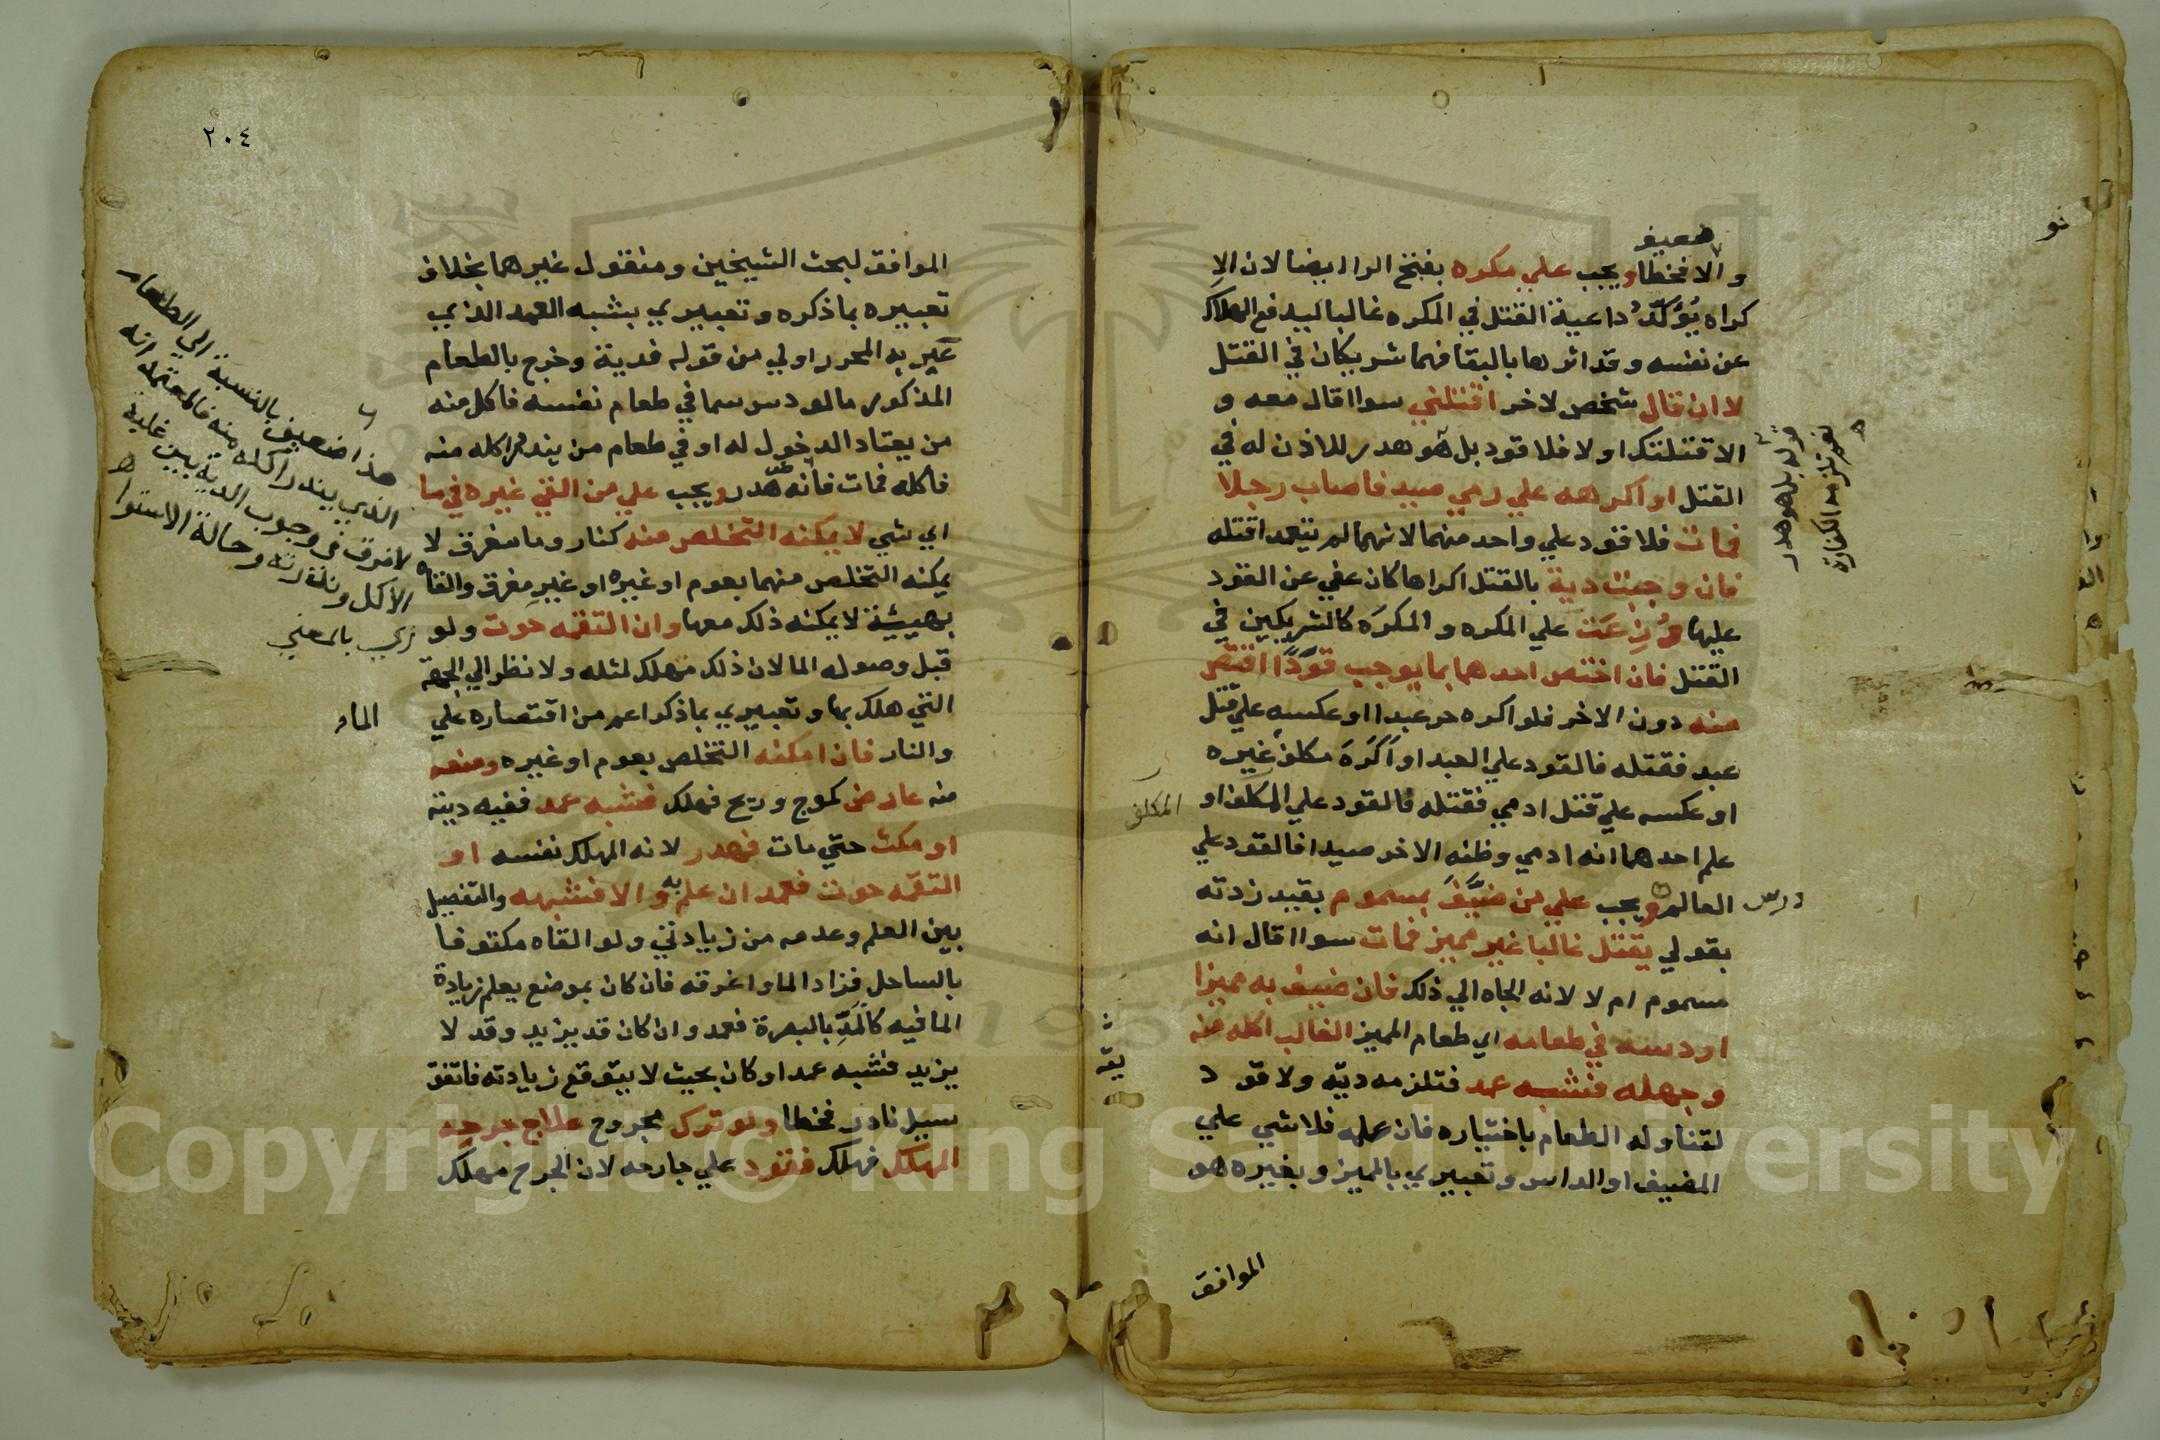 ضعيف
والا فخطا ويجب علي مكره بفتح الرا ايضا لان الا
كراه يؤكد داعية القتل في المكره غالبا ليدفع الهلاك
عن نفسه وقد اثرها بالبقا فهما شريكان في القتل
لا ان قال شخص لاخر اقتلني سوا اقال معه و
الا قتلتك او لا فلا قود بل هو هدر للاذن له في
القتل او اكرهه علي رمي صيد فاصاب رجلا
فمات فلا قود علي واحد منهما لانهما لم يتعمدا قتله
فان وجبت دية بالقتل اكراها كان عفي عن القود
عليها وزعت علي المكره والمكره كالشريكين في
القتل فان اختص احدهما بما يوجب قودا اقتص
منه دون الاخر فلو اكره حر عبدا او عكسه علي قتل
عبد فقتله فالقود علي العبد او اكره مكلف غيره
او عكسه علي قتل ادمي فقتله فالقود علي المكلف او
علم احدهما انه ادمي وظنه الاخر صيدا فالقود علي
العالم ويجب علي من ضيف بمسموم بقيد زدته
بقولي يقتل غالبا غير مميز فمات سوا اقال انه
مسموم ام لا لانه الجاه الي ذلك فان ضيف به مميزا
او دسه في طعامه اي طعام المميز الغالب اكله منه
وجهله فشبه عمد فتلزمه ديته ولا قود
لتناوله الطعام باختياره فان علمه فلا شي علي
المضيف او الداس وتعبيري بالمميز وبغيره هو
الموافق
قوله بل هو هدر
نعم تلزمه الكفارة
المكلف
درس
٢٠٤
الموافق لبحث الشيخين ومنقول غيرهما بخلاف
تعبيره بما ذكره وتعبيري بشبه العمد الذي
عبر به المحرر اولي من قوله فدية وخرج بالطعام
المذكور ما لو دس سما في طعام نفسه فاكل منه
من يعتاد الدخول له او في طعام من يندر اكله منه
فاكله فمات فانه هدر ويجب علي من القي غيره في ما
اي شي لا يمكنه التخلص منه كنار وما مغرق لا
يمكنه التخلص منهما بعوم او غيره او غير مغرق والقاه
بهيئة لا يمكنه ذلك معها وان التقمه حوت ولو
قبل وصوله الما لان ذلك مهلك لمثله ولا نظر الي الجهة
التي هلك بها وتعبيري بما ذكر اعم من اقتصاره علي
والنار فان امكنه التخلص بعوم او غيره ومنعه
منه عارض كموج وريح فهلك فشبه عمد ففيه ديته
او مكث حتي مات فهدر لانه المهلك نفسه او
التقمه حوت فعمد ان علم به والا فشبهه والتفصيل
بين العلم وعدمه من زيادتي ولو القاه مكتوفا
بالساحل فزاد الما واغرقه فان كان بموضع يعلم زيادة
الما فيه كالمد بالبصرة فعمد وان كان قد يزيد وقد لا
يزيد فشبه عمد او كان بحيث لا يتوقع زيادته فاتفق
سيل نادر فخطا ولو ترك مجروح علاج جرحه
المهلك فهلك فقود علي جارحه لان الجرح مهلك
هذا ضعيف بالنسبة الي الطعام
الذي يندر اكله منه فالمعتمد انه
لا فرق في وجوب الدية بين غلبة
الاكل وندرته وحالة الاستوا
زي بالمعني
الماء
Copyright © King Saud University